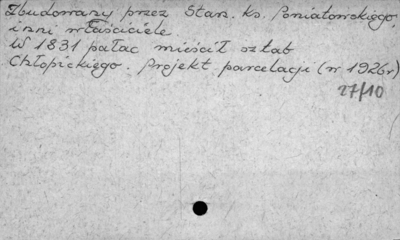 Zbudowany przez Stan. Ks. Poniatowskiego,
inni właściciele.
W 1831 pałac mieścił sztab
Chłopickiego. Projekt parcelacji (w 1926r)
27/10